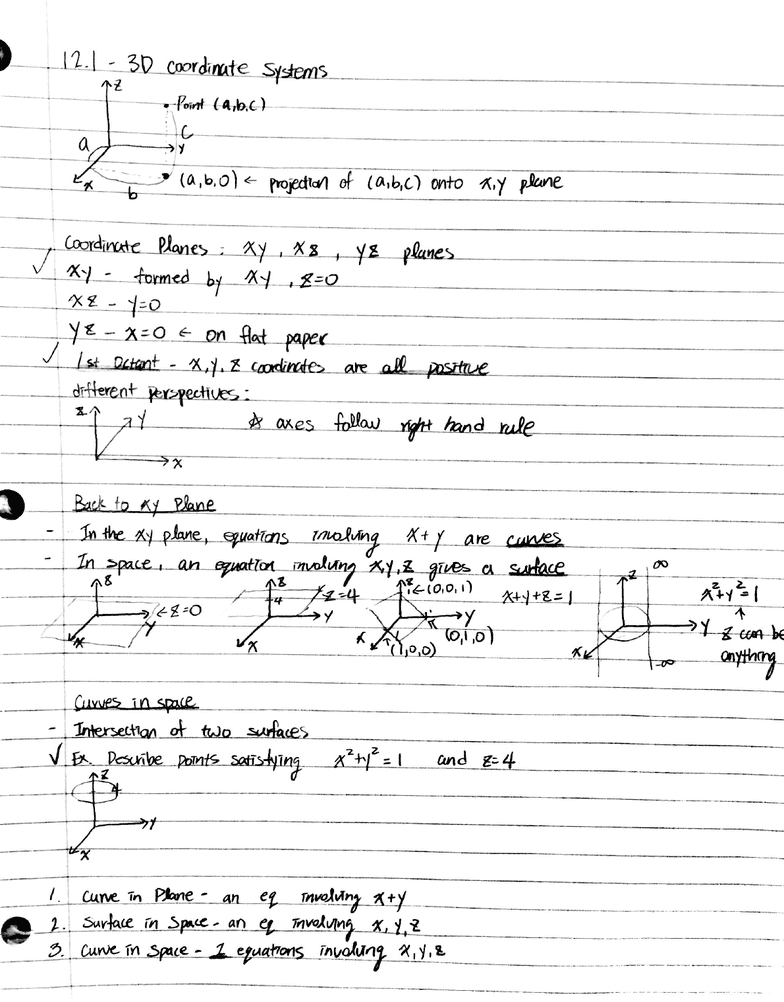 12.1 - 3D coordinate systems
z
Point (a,b,c)
a
c
y
x
b
(a,b,0) ← projection of (a,b,c) onto x,y plane
Coordinate Planes: xy, xz, yz planes
✓ xy - formed by xy, z=0
xz - y=0
yz - x=0 ← on flat paper
✓ 1st Octant - x,y,z coordinates are all positive
different perspectives:
z
y
x
☆ axes follow right hand rule
Back to xy Plane
- In the xy plane, equations involving x+y are curves
- In space, an equation involving x,y,z gives a surface
z
← z=0
y
x
z
4
z=4
y
x
z
←(0,0,1)
x+y+z=1
y
x
(0,1,0)
(1,0,0)
z
∞
x²+y²=1
↑
y
z can be
anything
x
-∞
Curves in space
- Intersection of two surfaces
✓ Ex. Describe points satisfying x²+y²=1 and z=4
z
4
y
x
1. Curve in Plane - an eq involving x+y
2. Surface in Space - an eq involving x,y,z
3. Curve in Space - 2 equations involving x,y,z